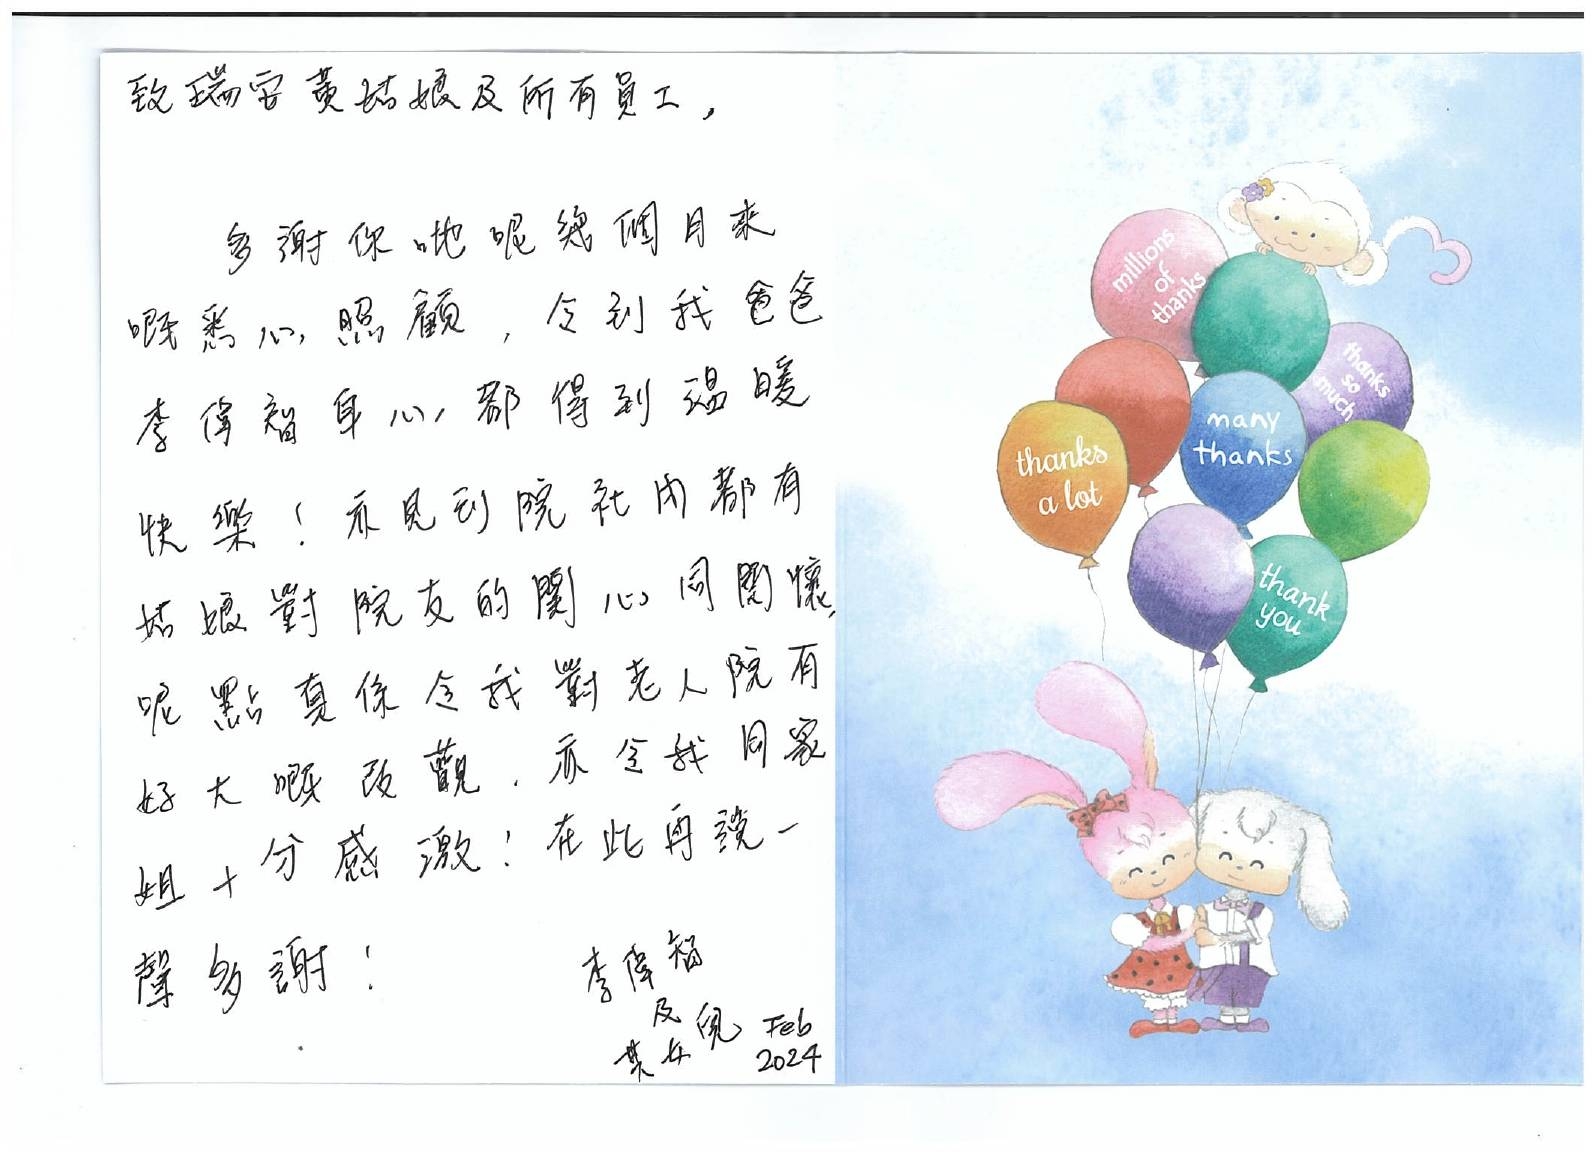 致瑞安黃姑娘及所有員工,
多謝你哋呢幾個月來
嘅悉心照顧,令到我爸爸
李偉智身心都得到溫暖
快樂!亦見到院社內都有
姑娘對院友的關心同關懷,
呢點真係令我對老人院有
好大嘅改觀.亦令我同家
姐十分感激!在此再說一
聲多謝!
李偉智
及
其女兒
Feb
2024
millions
of
thanks
thanks
so
much
many
thanks
thanks
a lot
thank
you